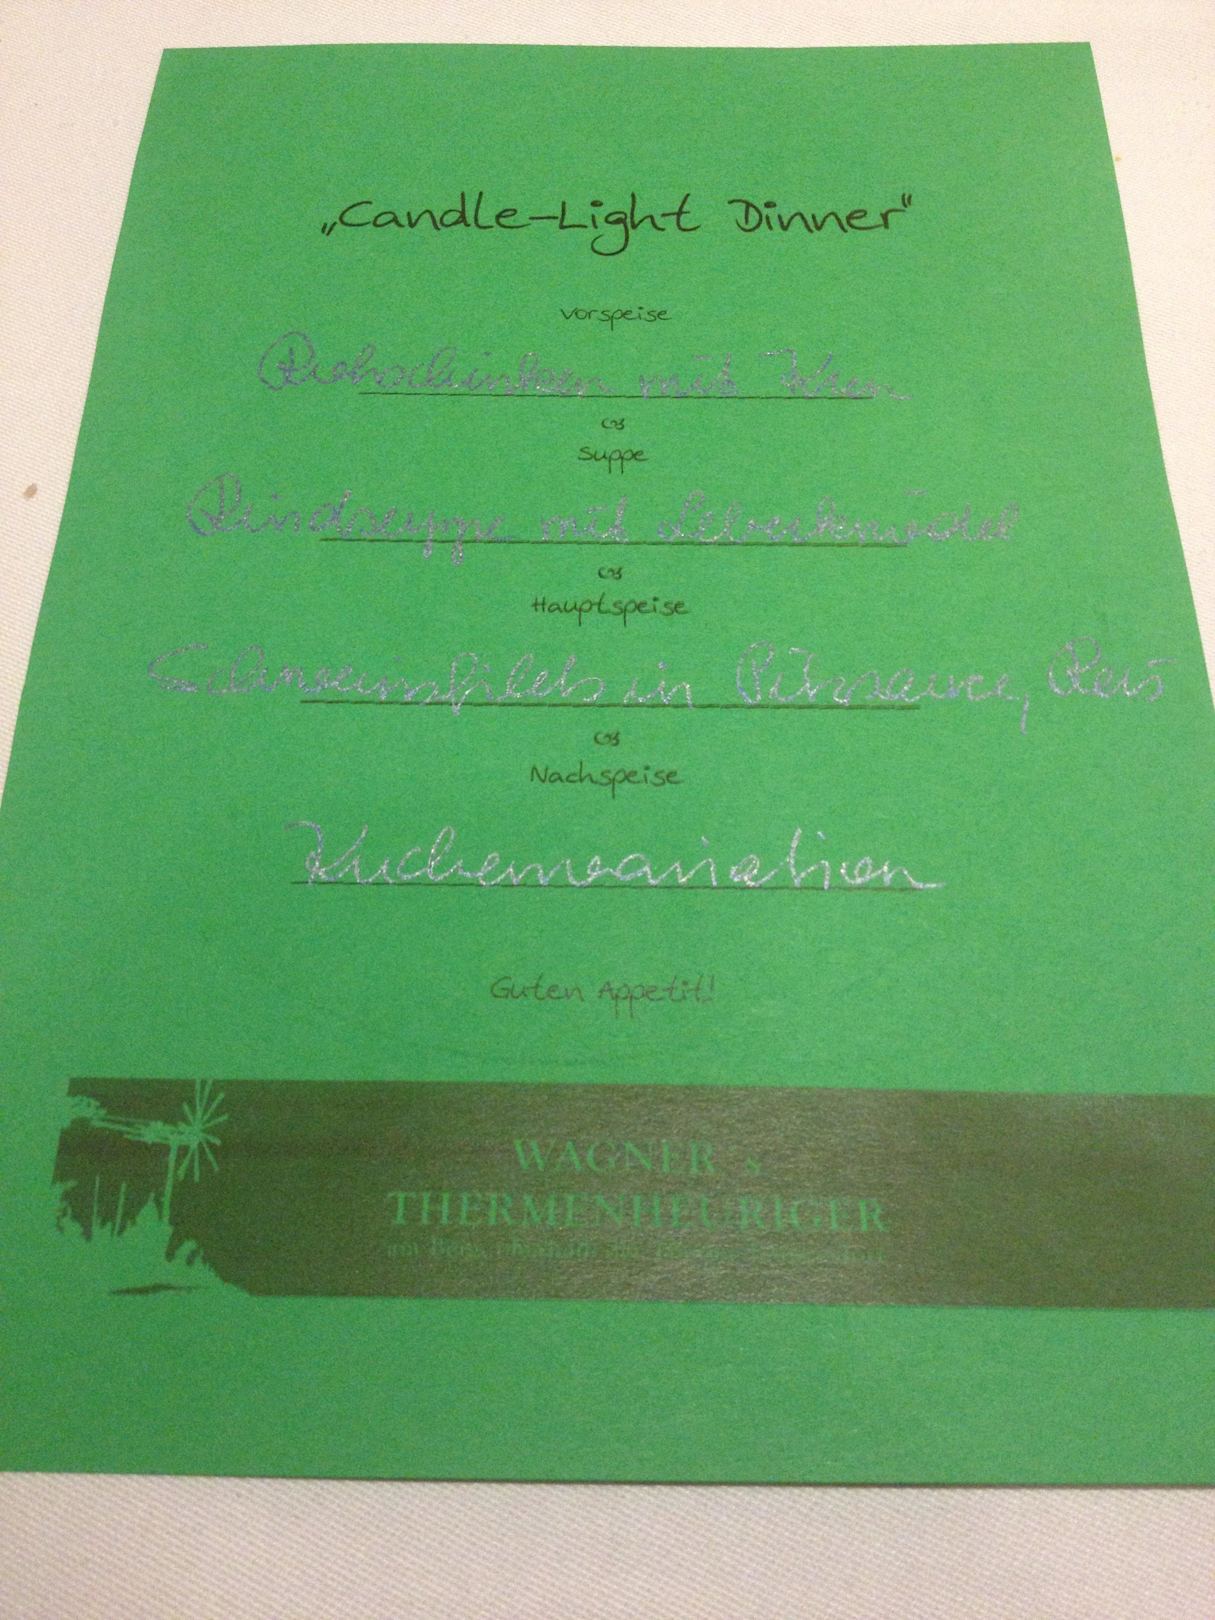 „Candle-Light Dinner“
Vorspeise
Rohschinken mit Kren
Suppe
Rindsuppe mit Leberknödel
Hauptspeise
Schweinsfilets in Pilzsauce, Reis
Nachspeise
Kuchenvariation
Guten Appetit!
WAGNER´s
THERMENHEURIGER
am Berg, oberhalb der